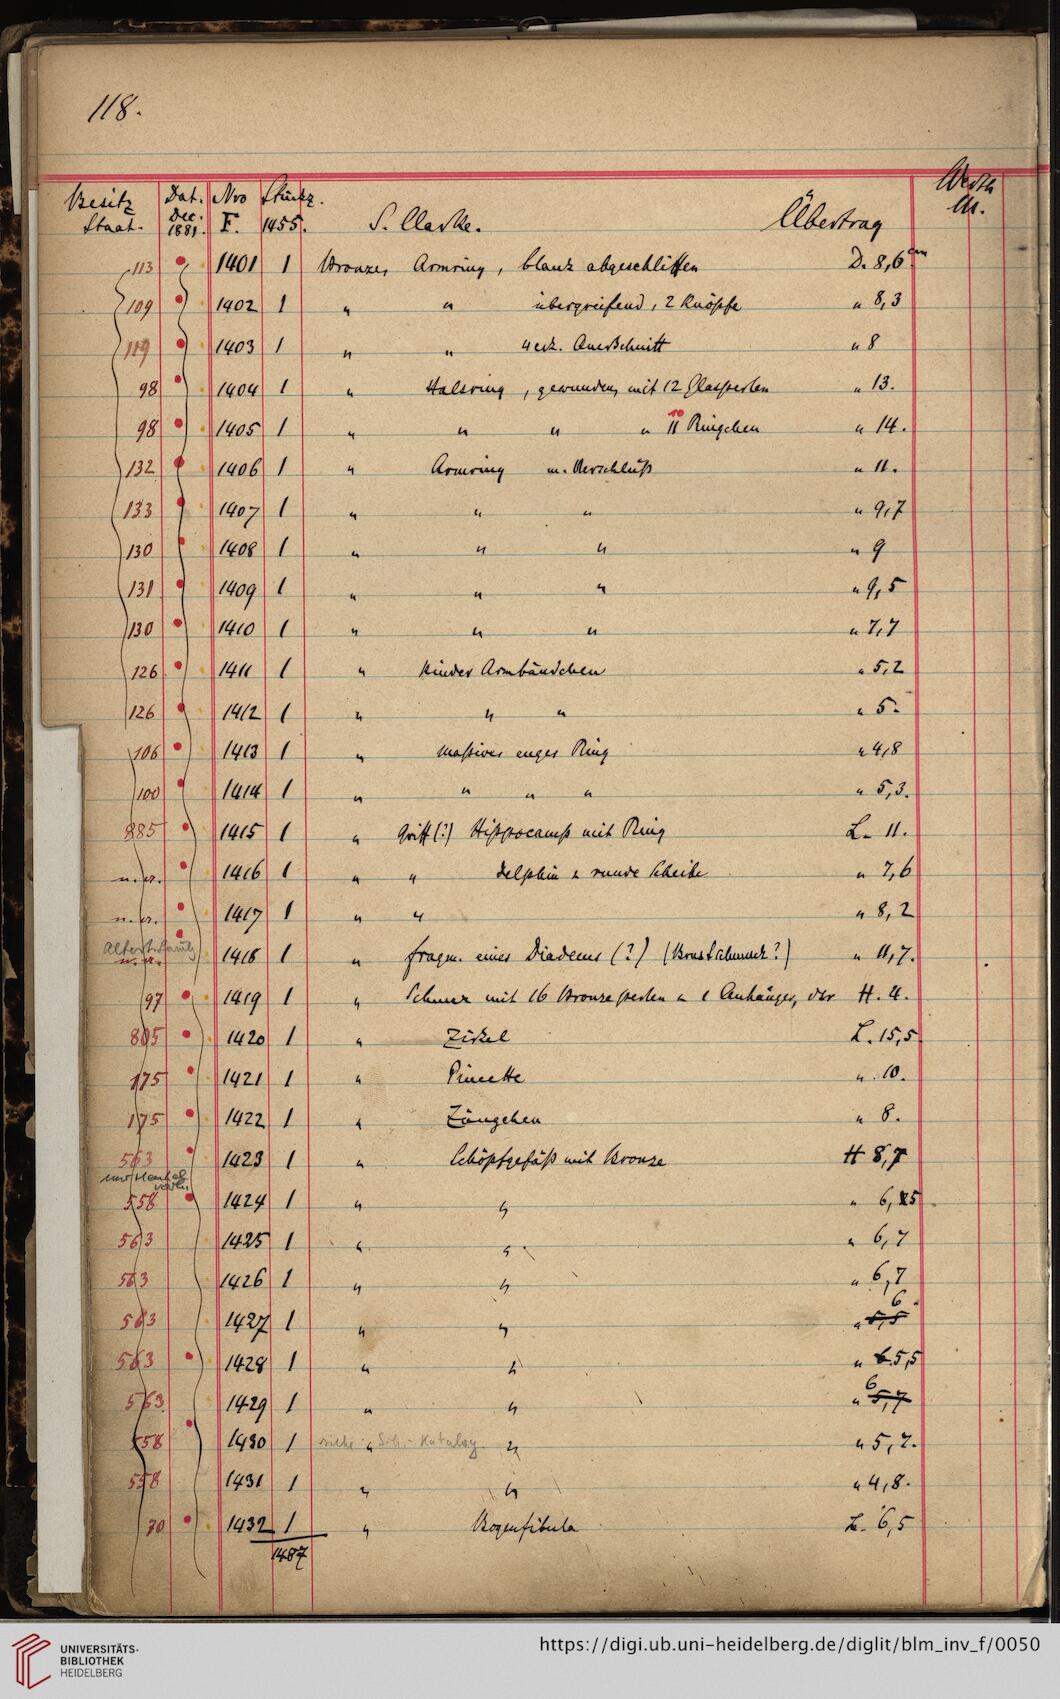 118.
Besitz Dat. Nro Stückz. Werth
Staat. Dec. 1881. F. 1455. S. Clarke. Übertrag M.
113 1401 1 Bronze, Armring, blank abgeschliffen D. 8,6 cm
109 1402 1 " " übergreifend, 2 Knöpfe " 8,3
119 1403 1 " " 4eck. Querschnitt " 8
98 1404 1 " Halsring, gewunden, mit 12 Glasperlen " 13.
98 1405 1 " " " " 11 10 Ringchen " 14.
132 1406 1 " Armring m. Verschluß " 11.
133 1407 1 " " " " 9,7
130 1408 1 " " " " 9
131 1409 1 " " " " 9,5
130 1410 1 " " " " 7,7
126 1411 1 " Kinder Armbändchen " 5,2
126 1412 1 " " " " 5.
106 1413 1 " massiver enger Ring " 4,8
100 1414 1 " " " " " 5,3.
885 1415 1 " Griff (?) Hippocamp mit Ring L. 11.
n.v. 1416 1 " " Delphin u runde Scheibe " 7,6
n.v. 1417 1 " " " 8,2
n.v. 1418 1 " fragm. eines Diadems (?) (Brustschmuck?) " 11,7.
97 1419 1 " Schnur mit 16 Bronzeperlen u 1 Anhänger, H. 4.
805 1420 1 " Zirkel L. 15,5
175 1421 1 " Pincette " 10.
175 1422 1 " Zängchen " 8.
563 1423 1 " Schöpfgefäß mit Bronze H 8,7
nur Henkel
558 1424 1 " " " 6,5
563 1425 1 " " " 6,7
563 1426 1 " " " 6,7
563 1427 1 " " " 5,5 6.
563 1428 1 " " " 6. 5,5
563 1429 1 " " " 5,7 6
558 1430 1 siehe " Katalog " " 5,2.
558 1431 1 " " " 4,8.
70 1432 1 " Bogenfibula L. 6,5
1487
UNIVERSITÄTS-
BIBLIOTHEK
HEIDELBERG
https://digi.ub.uni-heidelberg.de/diglit/blm_inv_f/0050